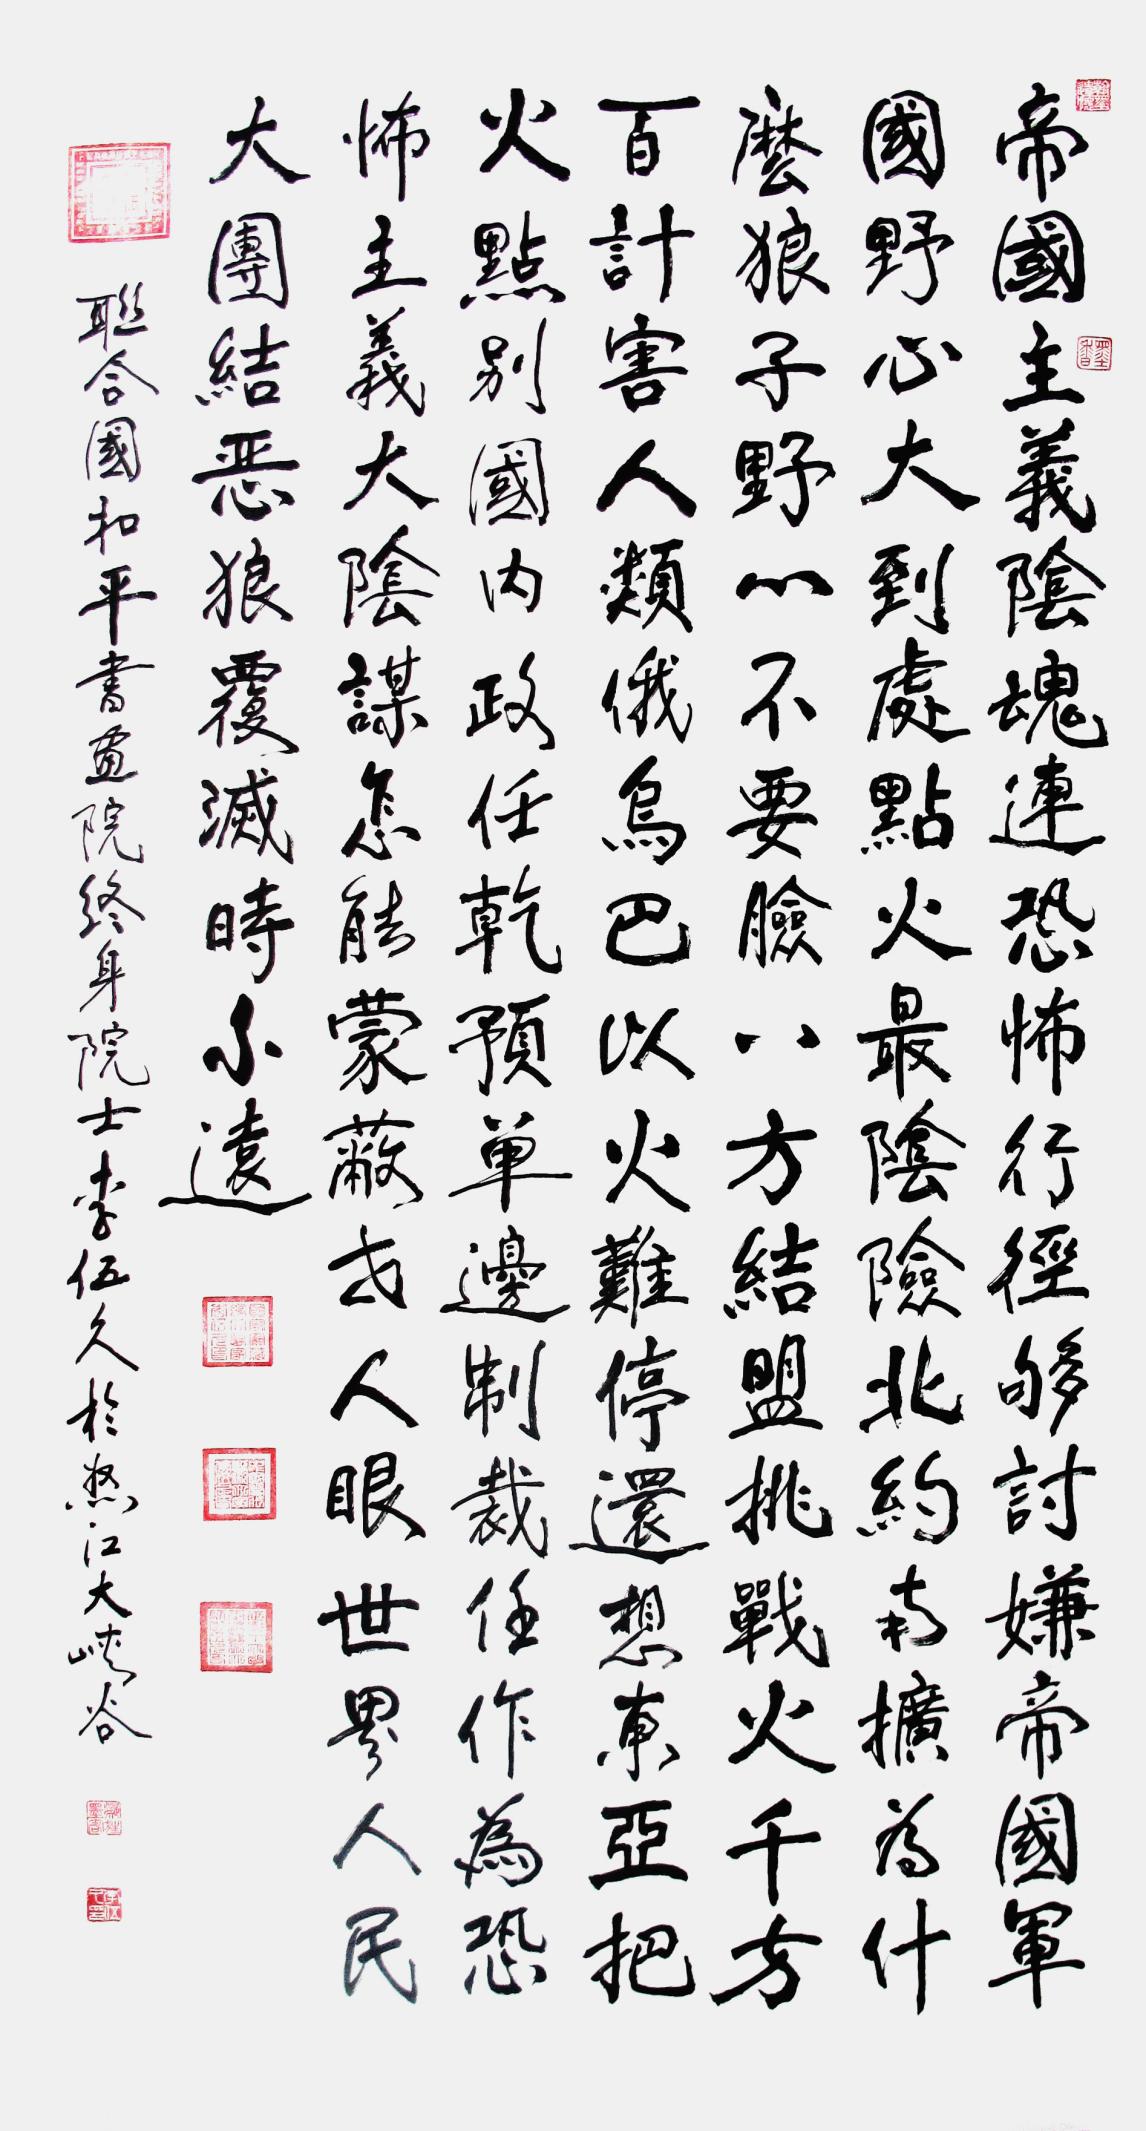 帝國主義陰魂連恐怖行徑够討嫌帝國軍
國野心大到處點火最陰險北約東擴為什
麼狼子野心不要臉八方結盟挑戰火千方
百計害人類俄烏巴以火難停還想東亞把
火點别國内政任乾預单邊制裁任作為恐
怖主義大陰謀怎能蒙蔽我人眼世界人民
大團結恶狼覆滅時不遠
聯合國和平書画院終身院士李伍久於怒江大峡谷